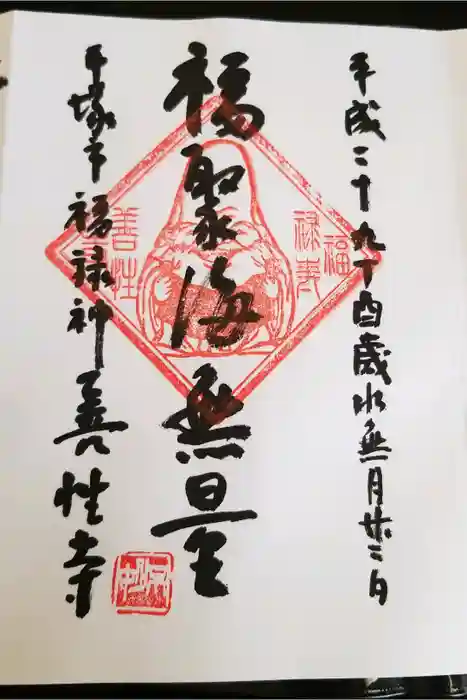 平成二十九丁酉歳水無月廿二日
福聚海無量
平塚市福禄神善性寺
福禄寿
善性